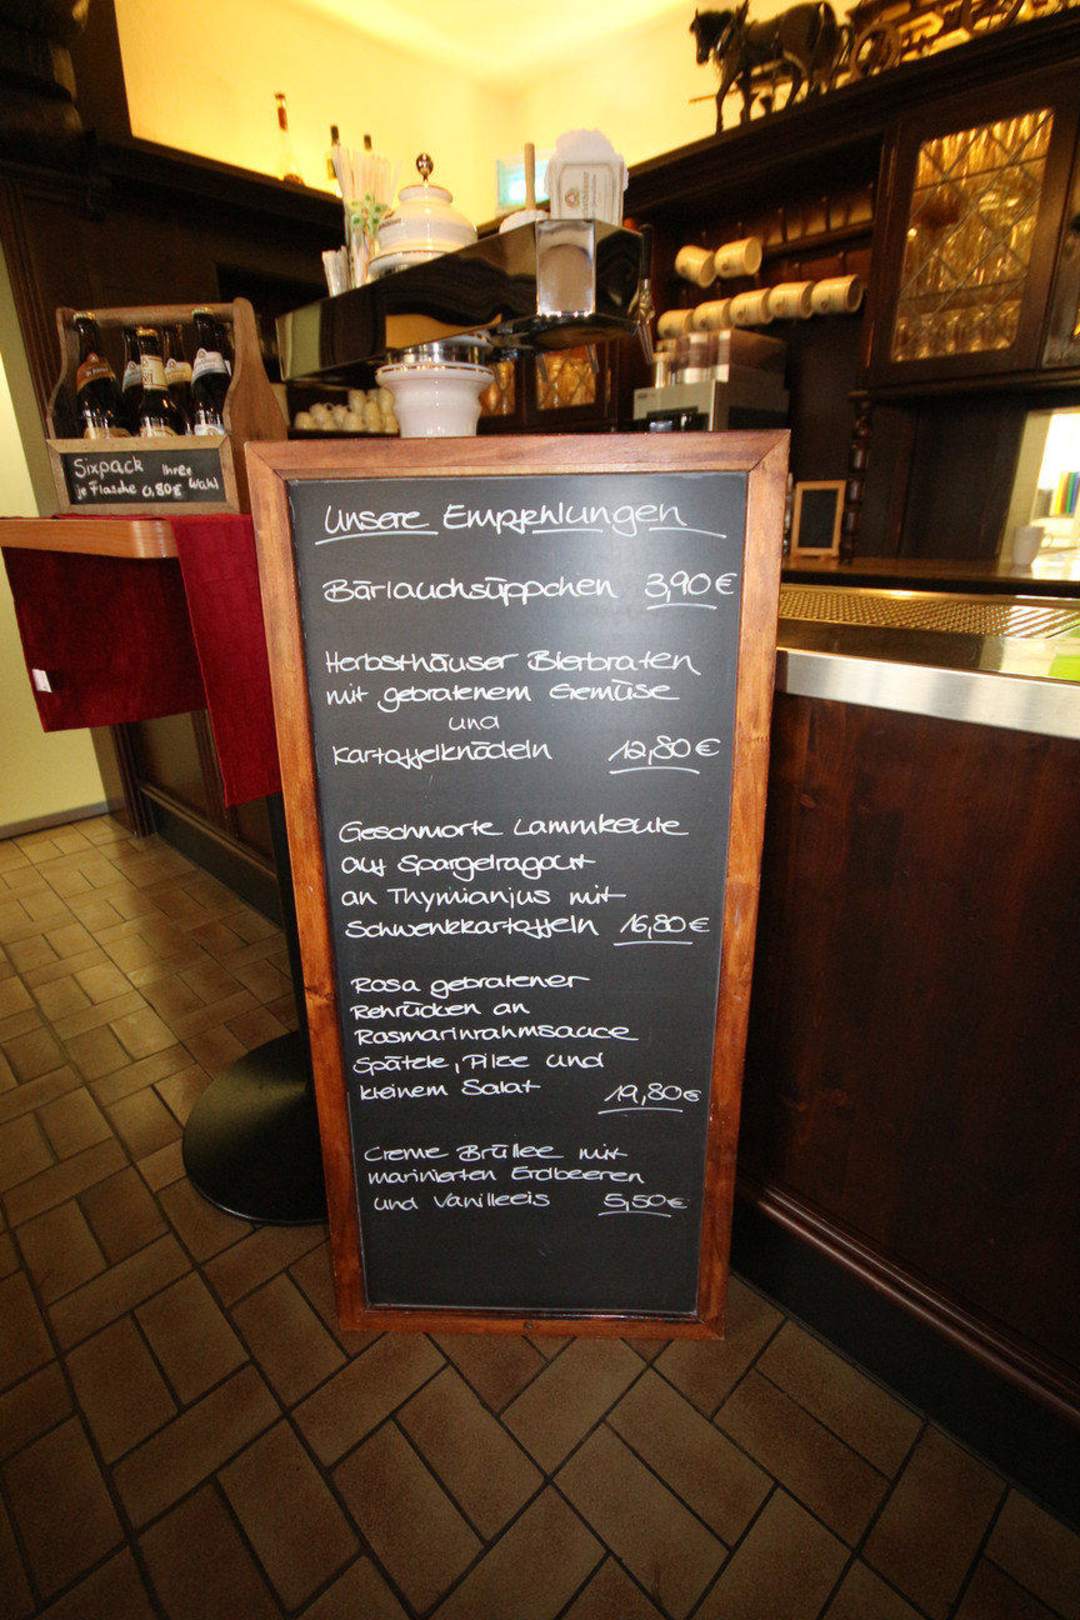 Sixpack Ihrer
je Flasche 0,80€ Wahl
Unsere Empfehlungen
Bärlauchsüppchen 3,90€
Herbsthäuser Bierbraten
mit gebratenem Gemüse
und
Kartoffelknödeln 12,80€
Geschmorte Lammkeule
auf Spargelragout
an Thymianjus mit
Schwenkkartoffeln 16,80€
Rosa gebratener
Rehrücken an
Rosmarinrahmsauce
Spätzle, Pilze und
kleinem Salat 19,80€
Creme Brüllee mit
marinierten Erdbeeren
und Vanilleeis 5,50€